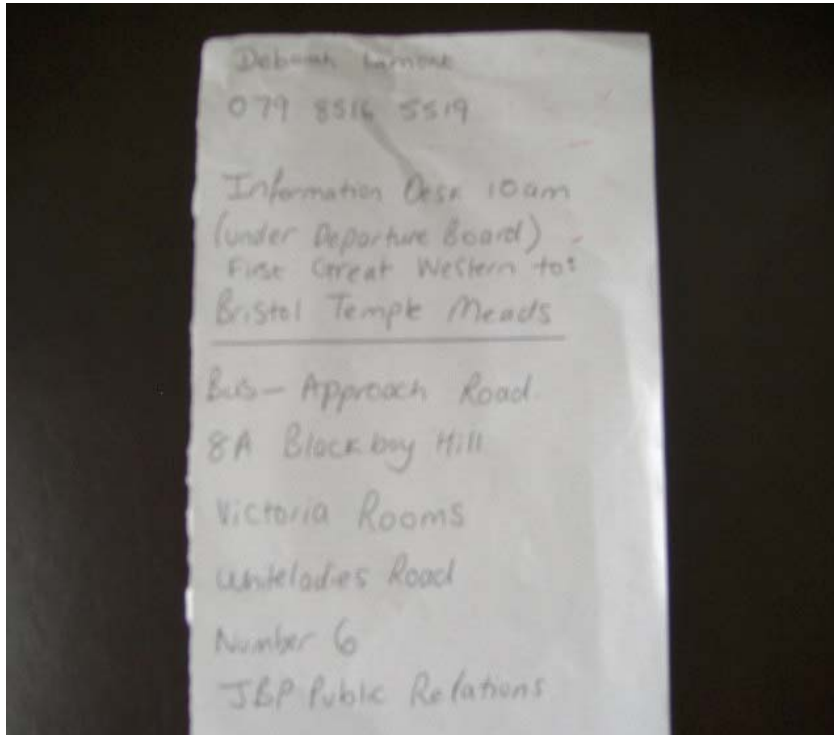 Deborah Lamont
079 8516 5519
Information Desk 10am
(under Departure Board)
First Great Western to:
Bristol Temple Meads
Bus - Approach Road
8A Blackboy Hill
Victoria Rooms
Whiteladies Road
Number 6
JBP Public Relations